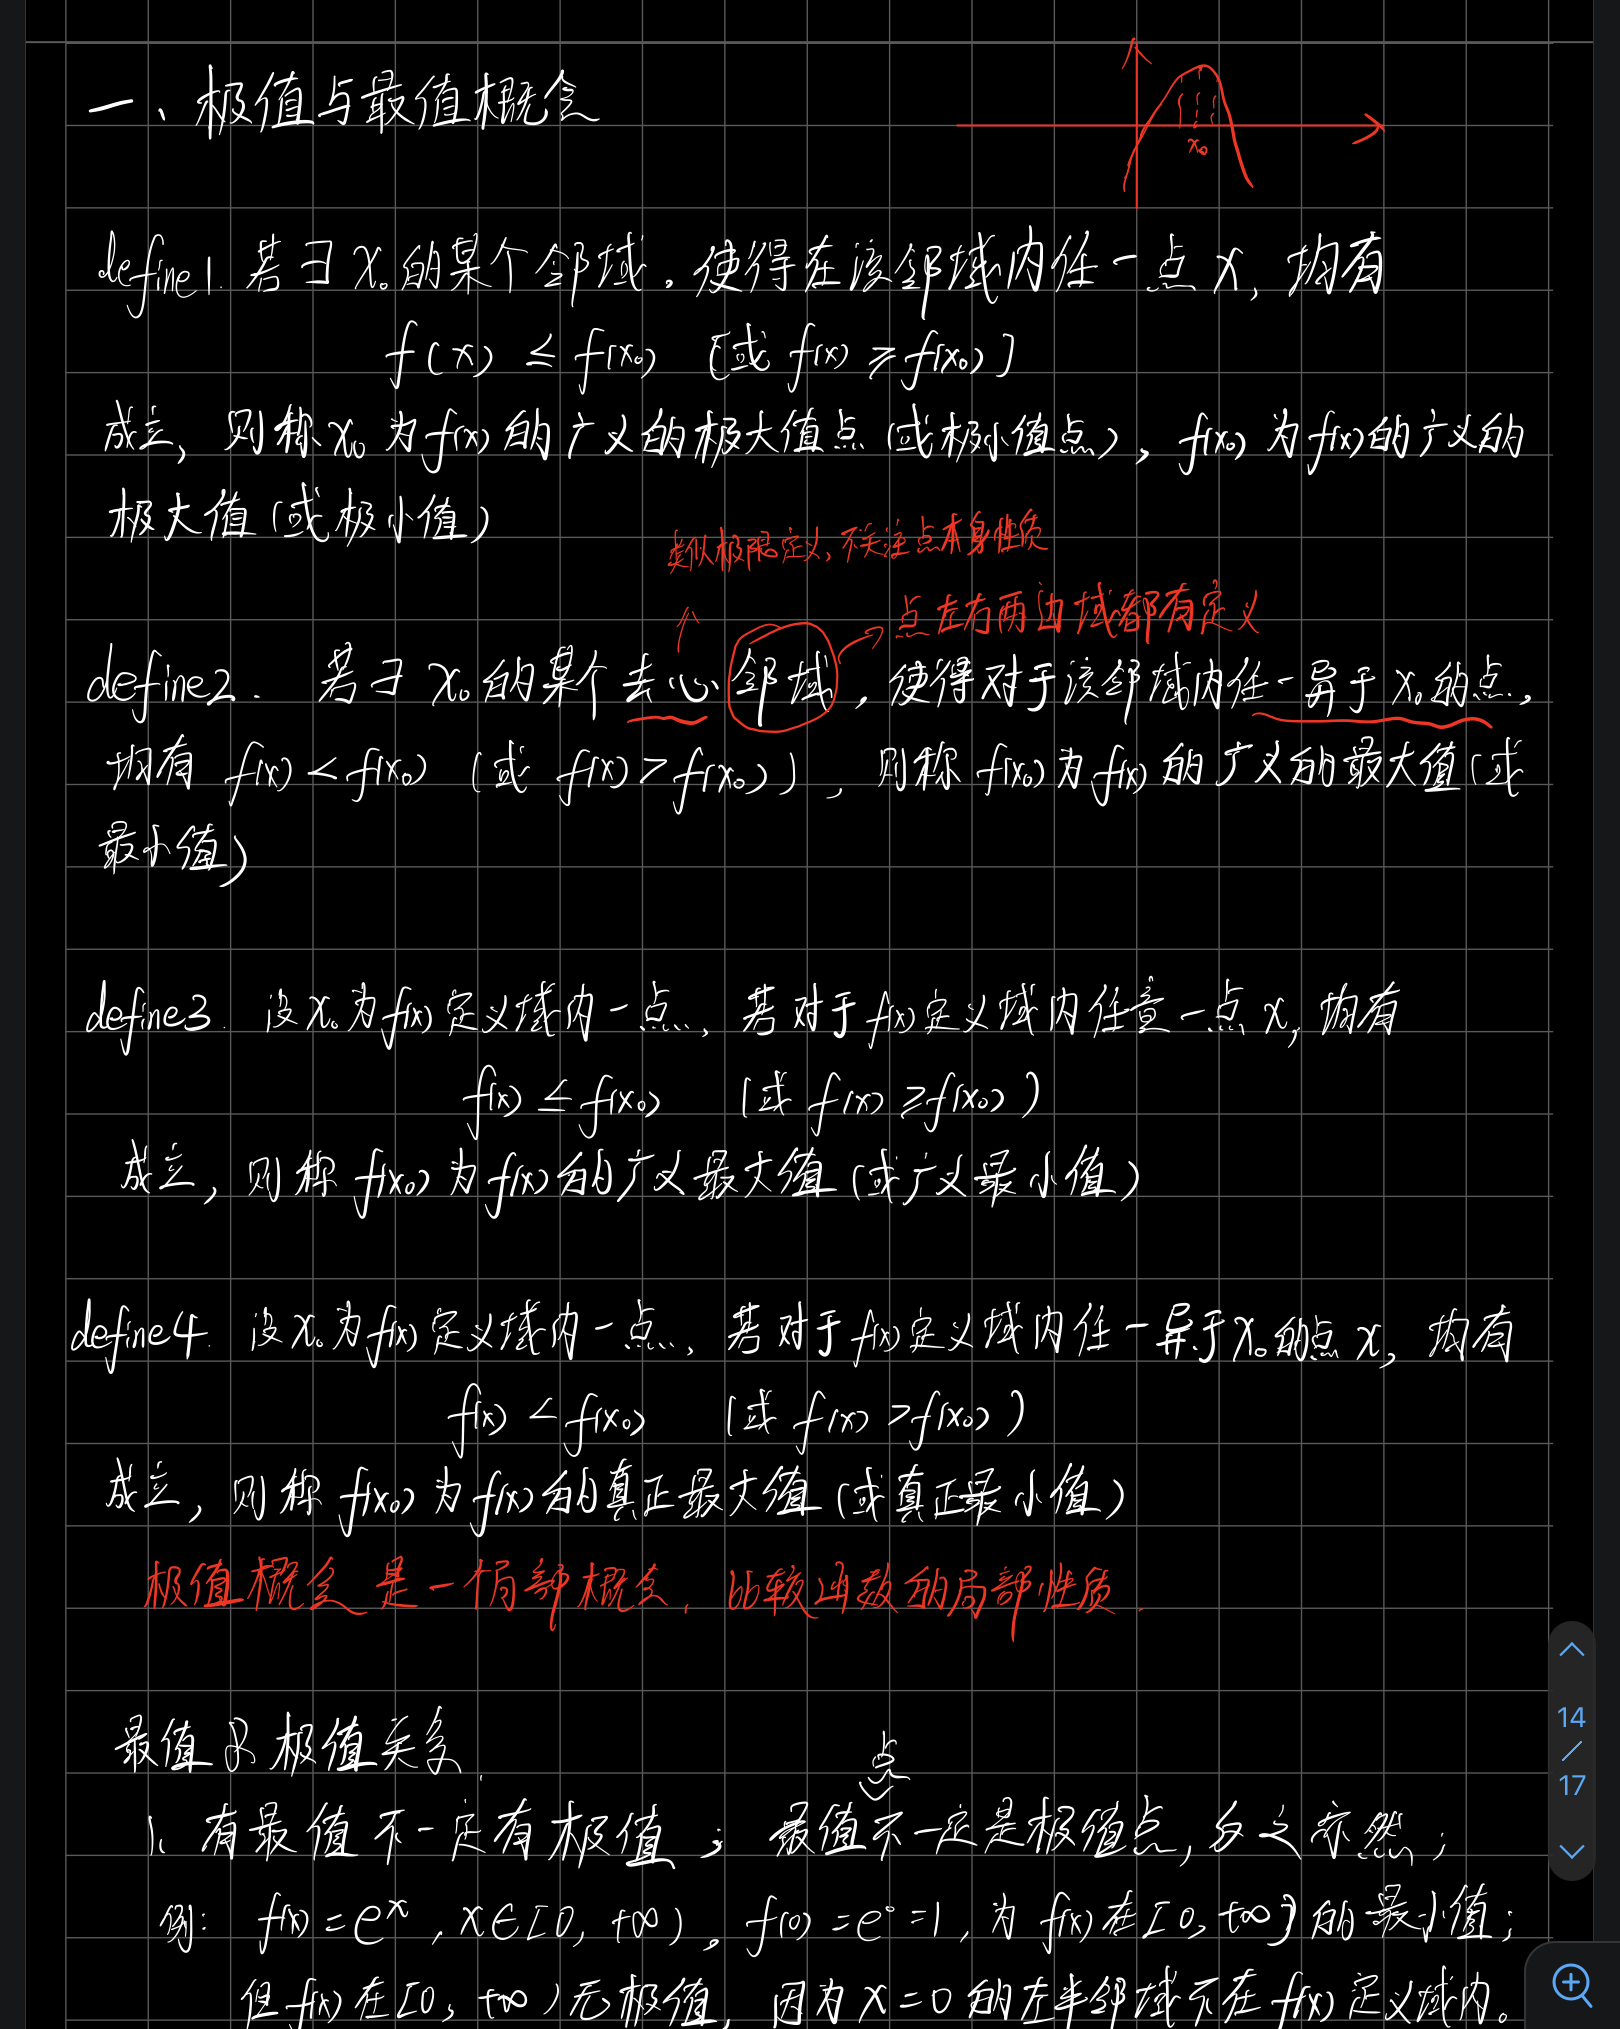 一、极值与最值概念
x₀
define1. 若∃ x₀的某个邻域，使得在该邻域内任一点 x，均有
f(x) ≤ f(x₀) [或 f(x) ≥ f(x₀)]
成立，则称x₀ 为f(x)的广义的极大值点（或极小值点），f(x₀) 为f(x)的广义的
极大值（或极小值）
类似极限定义，不关注点本身性质
点左右两边域都有定义
define2. 若∃ x₀的某个去心邻域，使得对于该邻域内任一异于 x₀的点，
均有 f(x) < f(x₀) （或 f(x) > f(x₀)），则称 f(x₀)为f(x)的广义的最大值（或
最小值）
define3. 设x₀为f(x)定义域内一点，若对于f(x)定义域内任意一点 x，均有
f(x) ≤ f(x₀) （或 f(x) ≥ f(x₀)）
成立，则称 f(x₀)为f(x)的广义最大值（或广义最小值）
define4. 设x₀为f(x)定义域内一点，若对于f(x)定义域内任一异于x₀的点 x，均有
f(x) < f(x₀) （或 f(x) > f(x₀)）
成立，则称 f(x₀)为f(x)的真正最大值（或真正最小值）
极值概念是一个局部概念，比较函数的局部性质.
最值及极值关系.
点
1. 有最值不一定有极值；最值不一定是极值点，反之亦然；
例：f(x)=eˣ，x∈[0，+∞)。f(0)=e⁰=1，为f(x)在[0，+∞)的最小值；
但f(x)在[0，+∞)无极值，因为x=0的左半邻域不在f(x)定义域内。
14
/
17